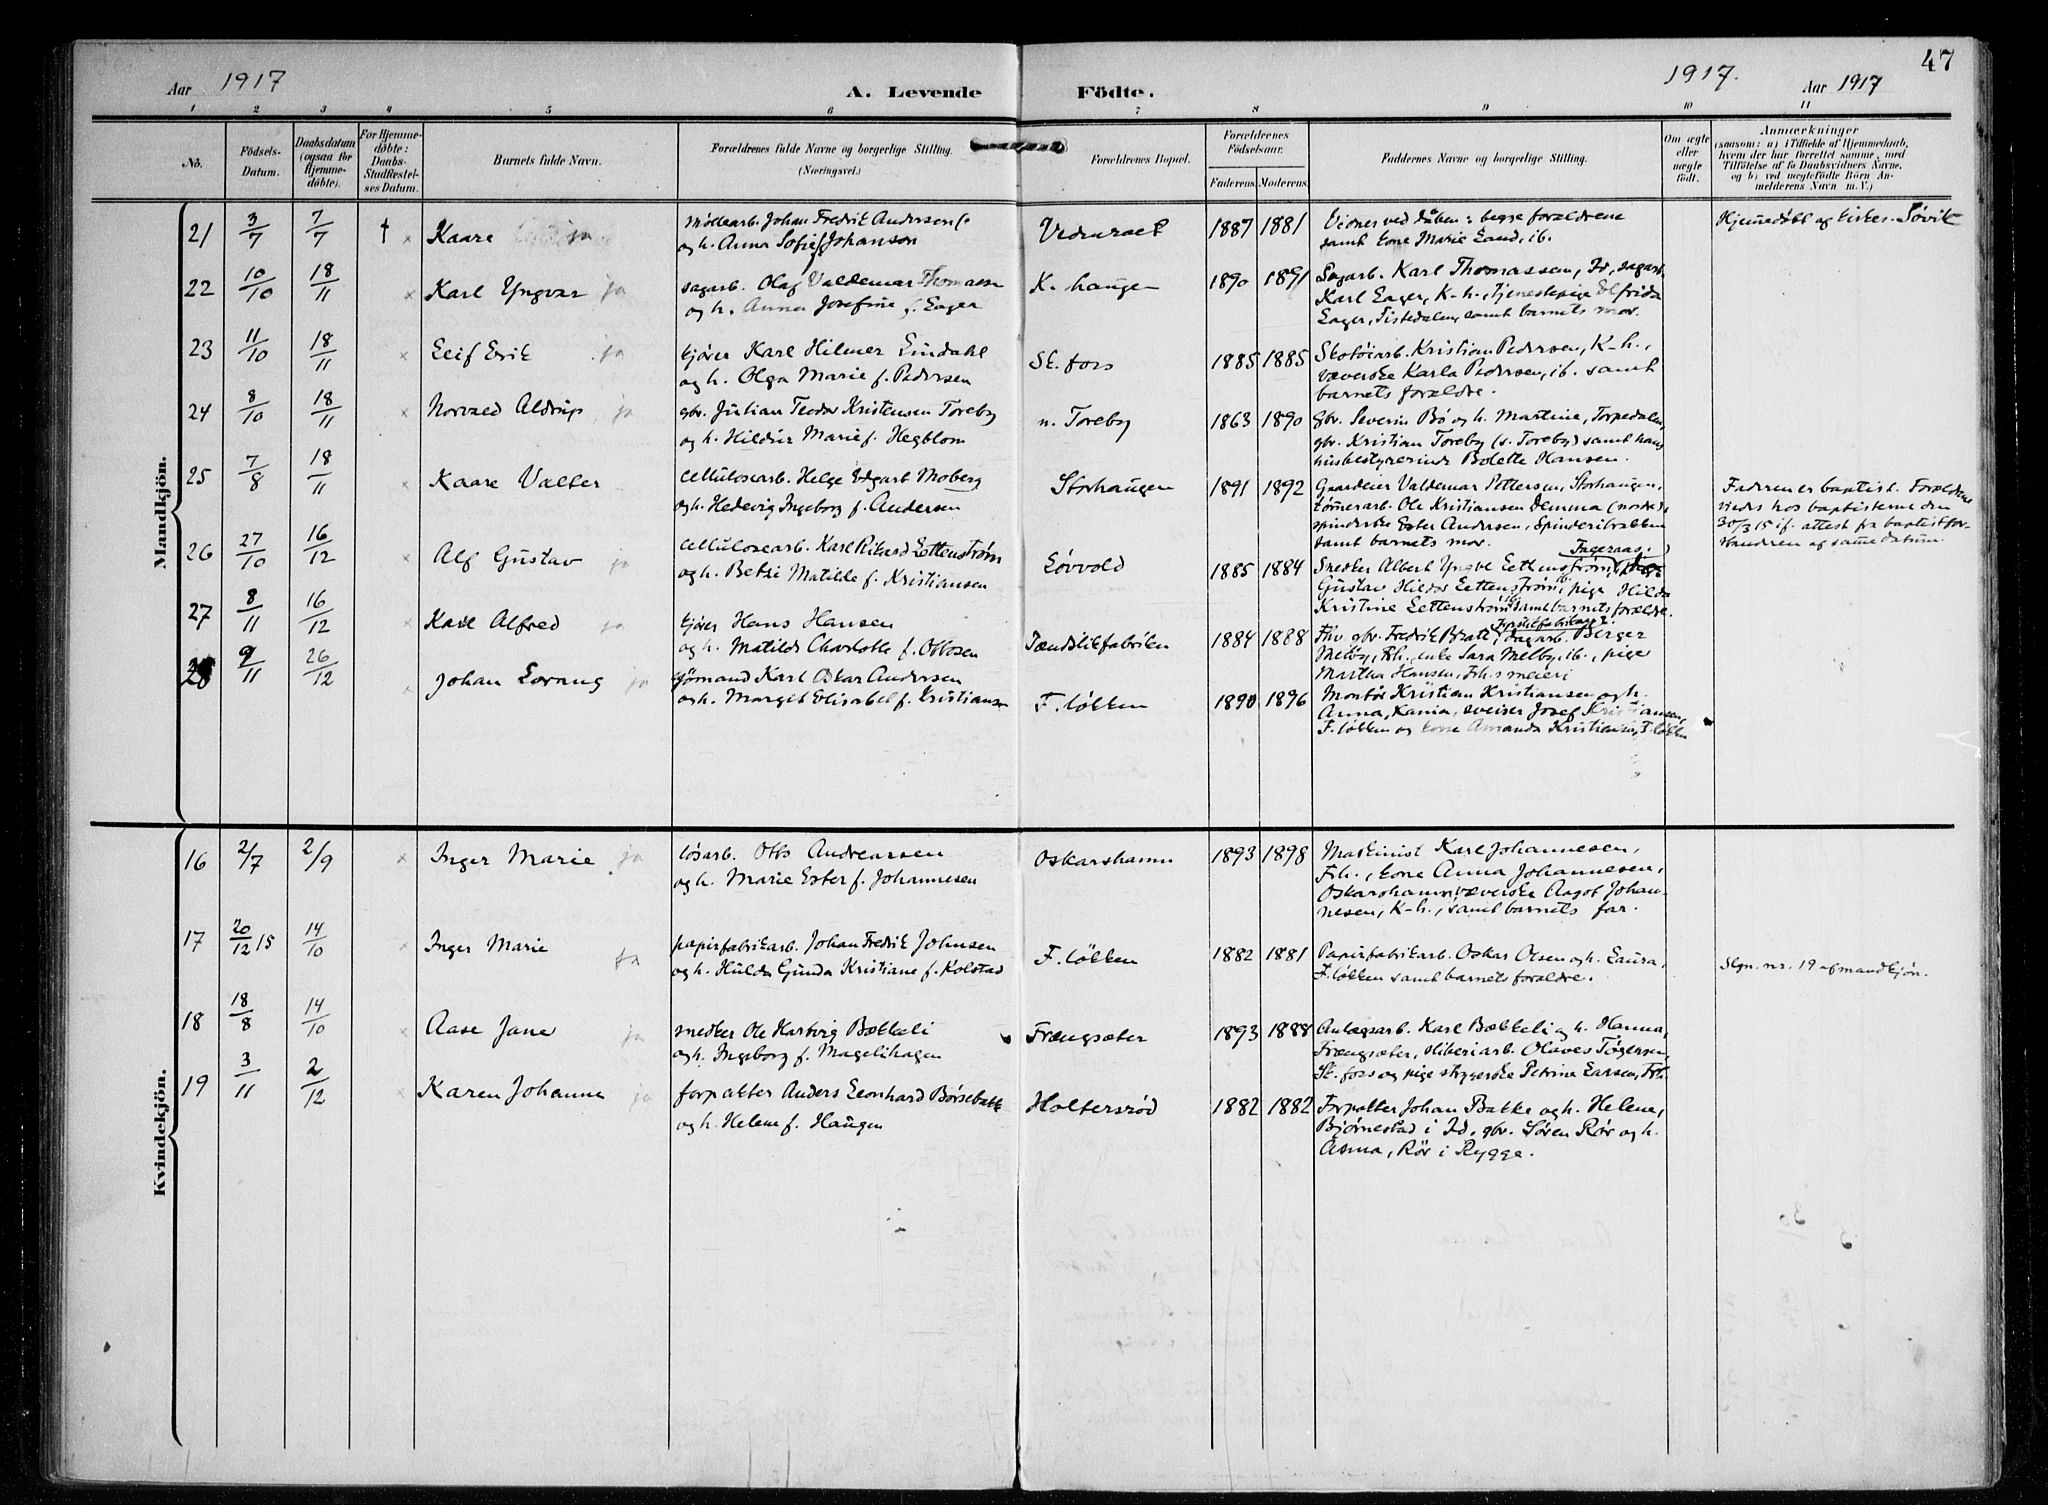 47
Aar 1917
A. Levende Födte.
1917. Aar 1917
1 2 3 4 5 6 7 8 9 10 11
No.
Födsels-Datum.
Daabsdatum (ogsaa for Hjemme-döbte).
For Hjemme-döbte: Daabs-Stadfæstel-ses Datum.
Barnets fulde Navn.
Forældrenes fulde Navne og borgerlige Stilling.
(Næringsvei.)
Forældrenes Bopæl.
Forældrenes Födselsaar.
Faderens. Moderens.
Faddernes Navne og borgerlige Stilling.
Om ægte eller uægte födt.
Anmærkninger
(saasom: a) i Tilfælde af Hjemmedaab, hvem der har forrettet samme, med Tilföielse af to Daabsvidners Navne, og b) ved uægtefödte Börn An-melderens Navn m. V.)
Mandkjön.
21 3/7 7/7 † × Kaare ja
møllearb. Johan Fredrik Andersen
og h. Anna Sofie f. Johanson
1887 1881
Vidner ved dåben: begge forældrene
samt kone Marie Lund, ib.
Hjemedøbt og kirkes. Løvik
22 10/10 18/11 × Karl Yngvar ja
sagarb. Olaf Valdemar Thomassen
og h. Anna Josefine f. Lager
K. haugen 1890 1891
Sagarb. Karl Thomassen, Id, sagarb.
Karl Lager, K-h., tjenestepige Elfrida
Lager, Tistedalen, samt barnets mor.
23 11/10 18/11 × Leif Erik ja
kjører Karl Hilmer Lindahl
og h. Olga Marie f. Pedersen
Sk. fors 1885 1885
Skotøiarb. Kristian Pedersen, K-h.,
væverske Karla Pedersen, ib. samt
barnets forældre.
24 8/10 18/11 × Norvald Aldrup ja
gbr. Julian Teodor Kristensen Toreby
og h. Hildur Marie f. Hegblom
n. Toreby 1863 1890
gbr. Severin Bø og h. Martine, Torpedalen,
gbr. Kristian Toreby (s. Toreby) samt hans
husbestyrerinde Bolette Hansen.
25 7/8 18/11 Kaare Valter
cellulosearb. Helge Edgart Moberg
og h. Hedevig Ingeborg f. Andersen
Storhaugen 1891 1892
Gaardeier Valdemar Pettersen, Storhaugen,
tømerarb. Ole Kristiansen Demma (nordre),
spinderske Ester Andersen, Spinderibakken
samt barnets mor.
Faderen er baptist. Forældrene
viedes hos baptisterne den
30/3 15 if. attest fra baptistfor-
standeren af samme datum.
26 27/10 16/12 × Alf Gustav ja
cellulosearb. Karl Rikard Zettenstrøm
og h. Betzi Matilde f. Kristiansen
Løvvold 1885 1884
Fageraas,
Snedker Albert Yngve Zettenstrøm
Gustav Hildor Zettenstrøm, ib. pige Hilda
Kristine Zettenstrøm ib. samt barnets forældre.
27 8/11 16/12 × Karl Alfred ja
kjører Hans Hansen
og h. Matilde Charlotte f. Ottosen
Tændstikfabriken 1884 1888
Fhv. gbr. Fredrik Bratt, Fyrstikfabrikken, sagarb. Berger
Melby, Frh., enke Sara Melby, ib., pige
Martha Hansen, Frh.s meieri
28 9/11 26/12 Johan Lorang ja
sjømand Karl Oskar Andersen
og h. Marget Elisabet f. Kristiansen
F. løkken 1890 1896
Montør Kristian Kristiansen og h.
Anna, Kania, sveiser Josef Kristiansen,
F. løkken og kone Amanda Kristiansen, F. løkken
Kvindekjön.
16 2/7 2/9 × Inger Marie ja
løsarb. Otto Andreassen
og h. Marie Ester f. Johannesen
Oskarshamn 1893 1898
Maskinist Karl Johannesen,
Frh., kone Anna Johannesen,
Oskarshamn, væverske Aagot Johan-
nesen, K-h., samt barnets far.
17 20/12 15 14/10 Inger Marie ja
papirfabrikarb. Johan Fredrik Johnsen
og h. Hulda Gunda Kristiane f. Kolstad
F. løkken 1882 1881
Papirfabrikarb. Oskar Olsen og h. Laura,
F. løkken samt barnets forældre.
Slgn. nr. 19 af mandkjøn.
18 18/8 14/10 × Aase Jane ja
snedker Ole Hartvig Bækkeli
og h. Ingeborg f. Magelihagen
Frængsæter 1893 1888
Anlægsarb. Karl Bækkeli og h. Hanna,
Frængsæter, sliberiarb. Olaves Tøgersen,
Sk. foss og pige strygerske Petrine Larsen, Frh.
19 3/11 2/12 × Karen Johanne ja
forpakter Anders Leonhard Børsebakke
og h. Helene f. Haugen
Holtersrød 1882 1882
Forpakter Johan Bakke og h. Helene,
Bjørnestad i Id, gbr. Søren Rør og h.
Asma, Rør i Rygge.